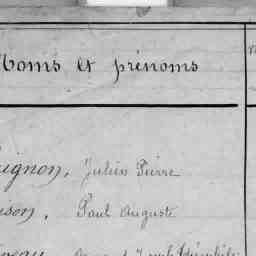 Noms et prénoms
ignon, Julien Pierre
son, Paul Auguste